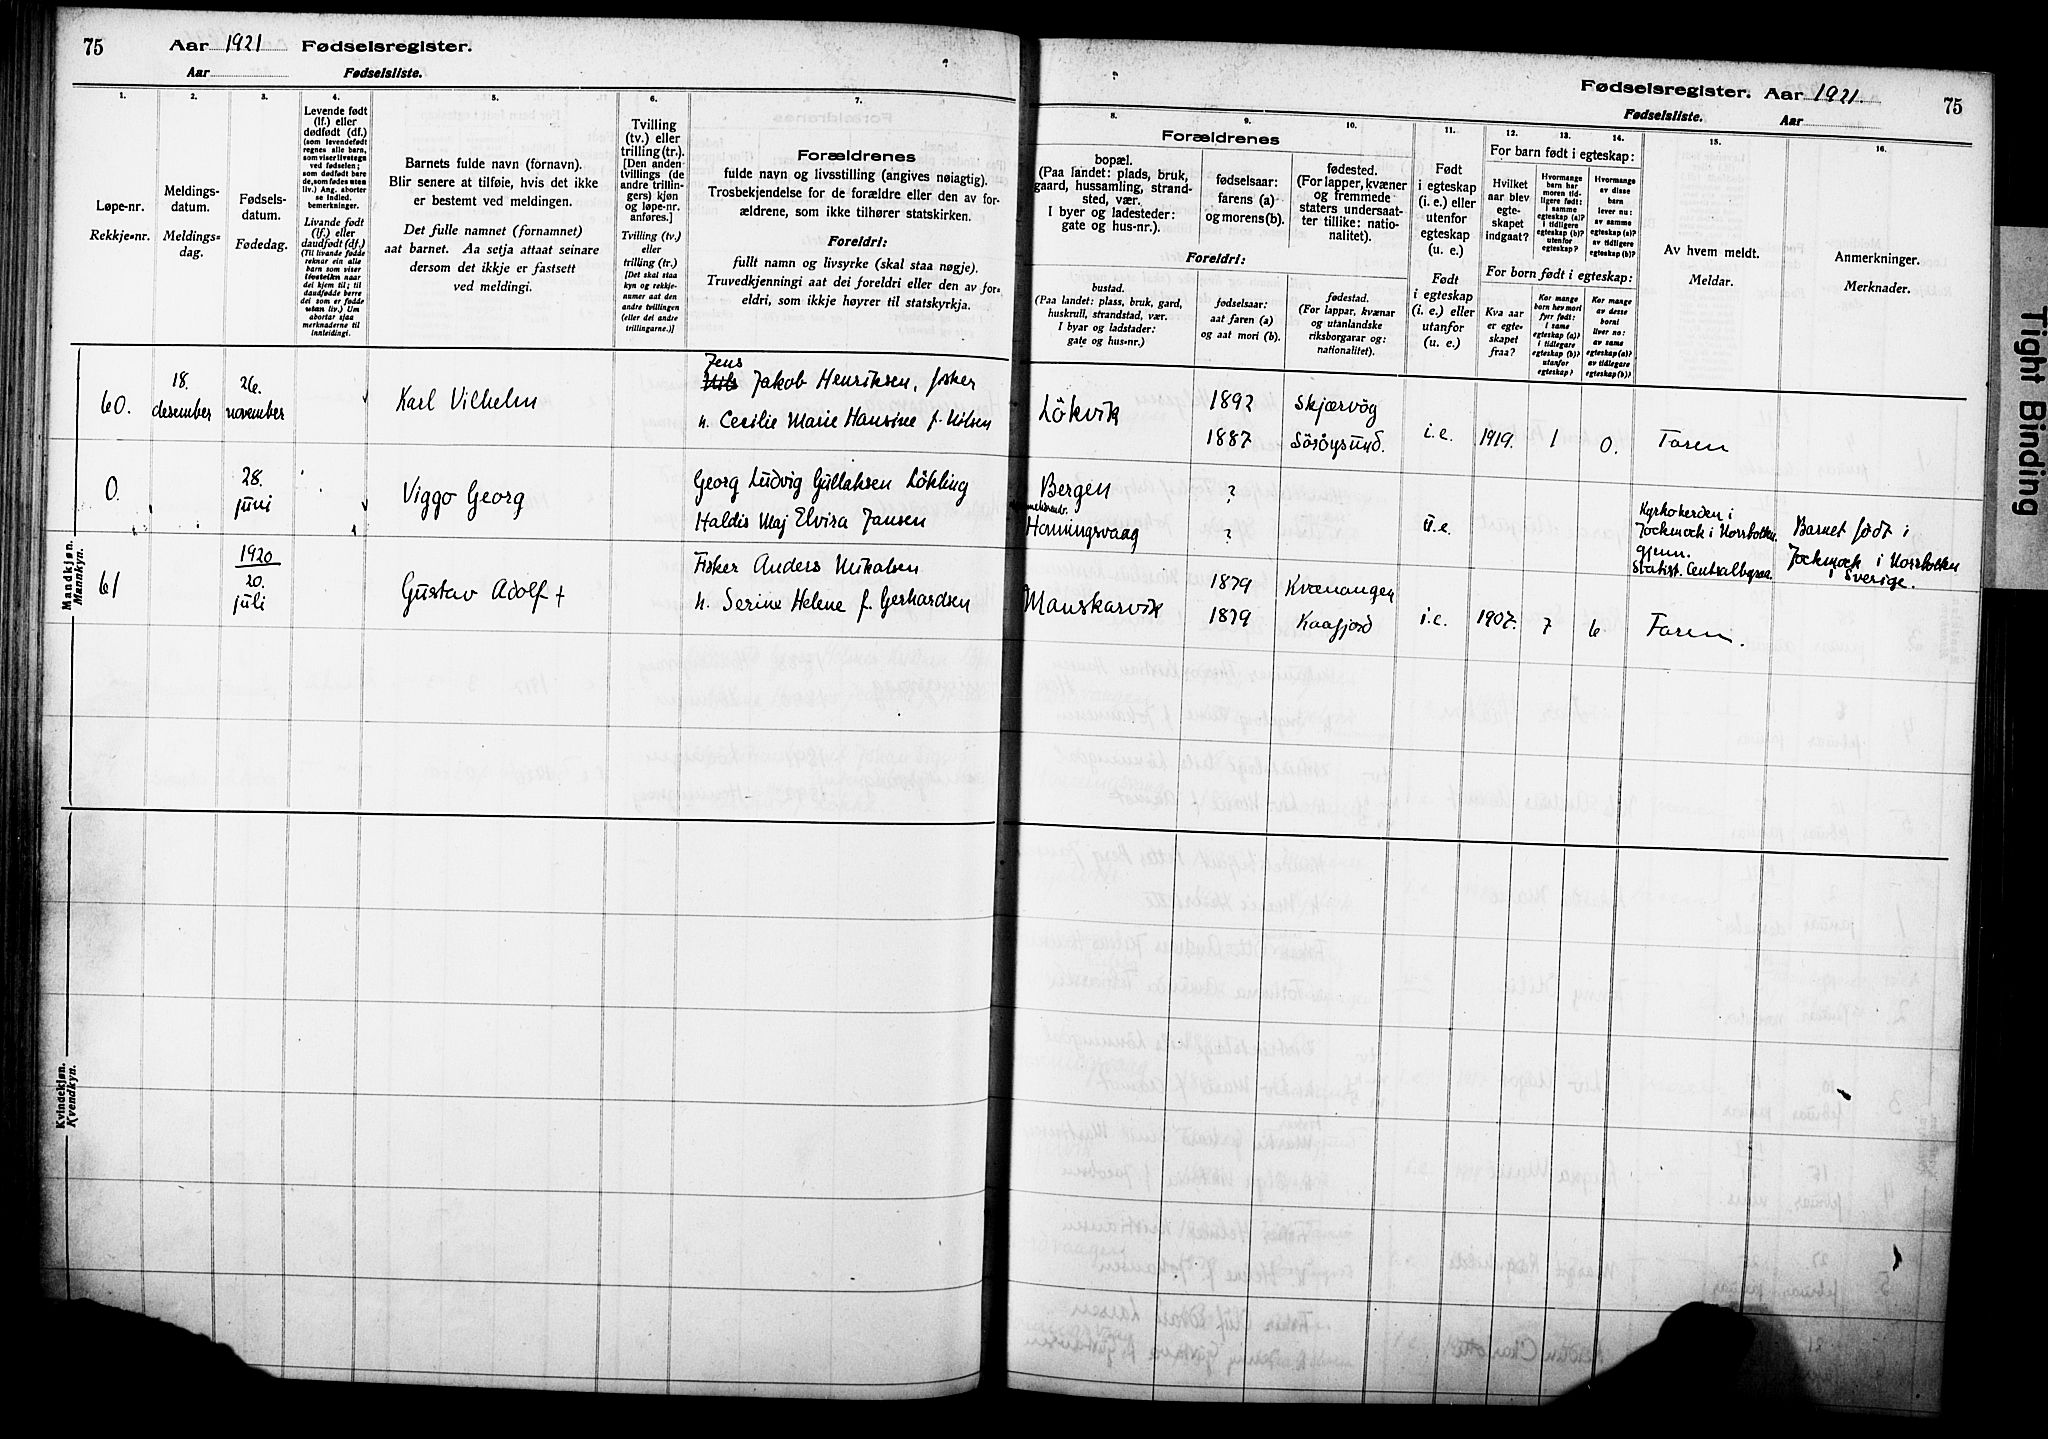 75 Aar 1921 Fødselsregister.
Aar Fødselsliste.
Fødselsregister. Aar 1921. 75
Fødselsliste. Aar
1. 2. 3. 4. 5. 6. 7.
Løpe-nr.
Rekkje-nr.
Meldings-
datum.
Meldings-
dag.
Fødsels-
datum.
Fødedag.
Levende født
(lf.) eller
dødfødt (df.)
(som levendefødt
regnes alle barn,
som viser livstegn
ved fødselen;
som dødfødt bare
de, som fødes uten
liv.) Ang. aborter
se indled.
bemerkninger.
Livande født
(lf.) eller
daudfødt (df.)
(Til livande fødde
reknar ein alle
barn som viser
livsteikn naar
dei kjem til; til
daudfødde berre
dei som er fødde
utan liv.) Um
abortar sjaa
merknaderne til
innleidingi.
Barnets fulde navn (fornavn).
Blir senere at tilføie, hvis det ikke
er bestemt ved meldingen.
Det fulle namnet (fornamnet)
aat barnet. Aa setja attaat seinare
dersom det ikkje er fastsett
ved meldingi.
Tvilling
(tv.) eller
trilling (tr.).
[Den anden
tvillings (de
andre trillin-
gers) kjøn
og løpe-nr.
anføres.]
Tvilling (tv.)
eller
trilling (tr.)
[Det skal staa
kyn og rekkje-
numer aat den
andre tvillingen
(eller dei andre
trillingarne.)]
Forældrenes
fulde navn og livsstilling (angives nøiagtig).
Trosbekjendelse for de forældre eller den av for-
ældrene, som ikke tilhører statskirken.
Foreldri:
fullt namn og livsyrke (skal staa nøgje).
Truvedkjenningi aat dei foreldri eller den av for-
eldri, som ikkje høyrer til statskyrkja.
8. 9. 10. 11. 12. 13. 14. 15. 16.
Forældrenes
bopæl.
(Paa landet: plads, bruk,
gaard, hussamling, strand-
sted, vær.
I byer og ladesteder:
gate og hus-nr.).
fødselsaar:
farens (a)
og morens (b).
fødested.
(For lapper, kvæner
og fremmede
staters undersaat-
ter tillike: natio-
nalitet).
Foreldri:
bustad.
(Paa landet: plass, bruk, gard,
huskrull, strandstad, vær.
I byar og ladstader:
gate og hus-nr.)
fødselsaar:
aat faren (a)
og aat mori (b).
fødestad.
(For lappar, kvænar
og utanlandske
riksborgarar og:
nationalitet).
Født
i egteskap
(i. e.) eller
utenfor
egteskap
(u. e.)
Født
i egteskap
(i. e.) eller
utanfor
(u. e.)
For barn født i egteskap:
Hvilket
aar blev
egte-
skapet
indgaat?
Hvormange
barn har
moren tid-
ligere født:
I samme
egteskap (a)?
I tidligere
egteskap (b)?
utenfor
egteskap?
Hvormange
av disse
barn
lever nu:
av samme
egteskap (a)?
av tidligere
egteskap (b)?
For born født i egteskap:
Kva aar
er egte-
skapet
fraa?
Kor mange
barn hev mori
fyrr født:
I same
egteskap (a)?
I tidlegare
egteskap (b)?
utanfor
egteskap?
Kor mange
av desse
borni
liver no:
av same
egteskap (a)?
av tidlegare
egteskap (b)?
Av hvem meldt.
Meldar.
Anmerkninger.
Merknader.
Mandkjøn.
Mannkyn.
60. 18. desember 26. november Karl Vilhelm
Jens
Nils Jakob Henriksen, fisker
h. Cecilie Marie Hansine f. Nilsen
Lökvik 1892 Skjærvög
1887 Söröysund. i.e. 1919. 1 0. Faren
0. 28. juni Viggo Georg
Georg Ludvig Gullaksen Lökling
Haldis Maj Elvira Jansen
Bergen ?
Honningsvaag ? u.e.
Kyrkoherden i
Jockmock i Norrbotten
gjenn.
Statist. Centralbyraa.
Barnet født i
Jockmock i Norrbotten
i Sverige.
61 1920
20.
juli Gustav Adolf +
Fisker Anders Mikalsen
h. Serine Helene f. Gerhardsen
Manskarvik 1879 Kvænangen
1879 Kaafjord i.e. 1907. 7 6 Faren.
Kvindekjøn.
Kvendkyn.
Tight Binding